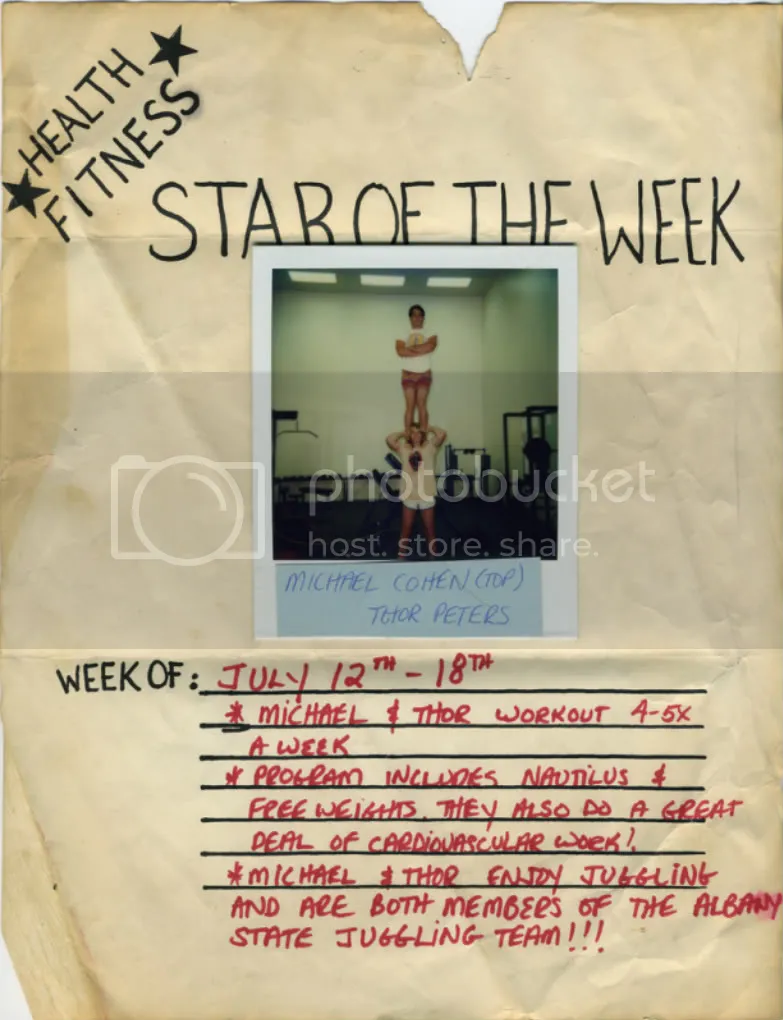 HEALTH
FITNESS
STAR OF THE WEEK
photobucket
host. store. share.
MICHAEL COHEN (TOP)
THOR PETERS
WEEK OF: JULY 12TH - 18TH
* MICHAEL & THOR WORKOUT 4-5X
A WEEK
* PROGRAM INCLUDES NAUTILUS &
FREE WEIGHTS. THEY ALSO DO A GREAT
DEAL OF CARDIOVASCULAR WORK!
* MICHAEL & THOR ENJOY JUGGLING
AND ARE BOTH MEMBERS OF THE ALBANY
STATE JUGGLING TEAM!!!